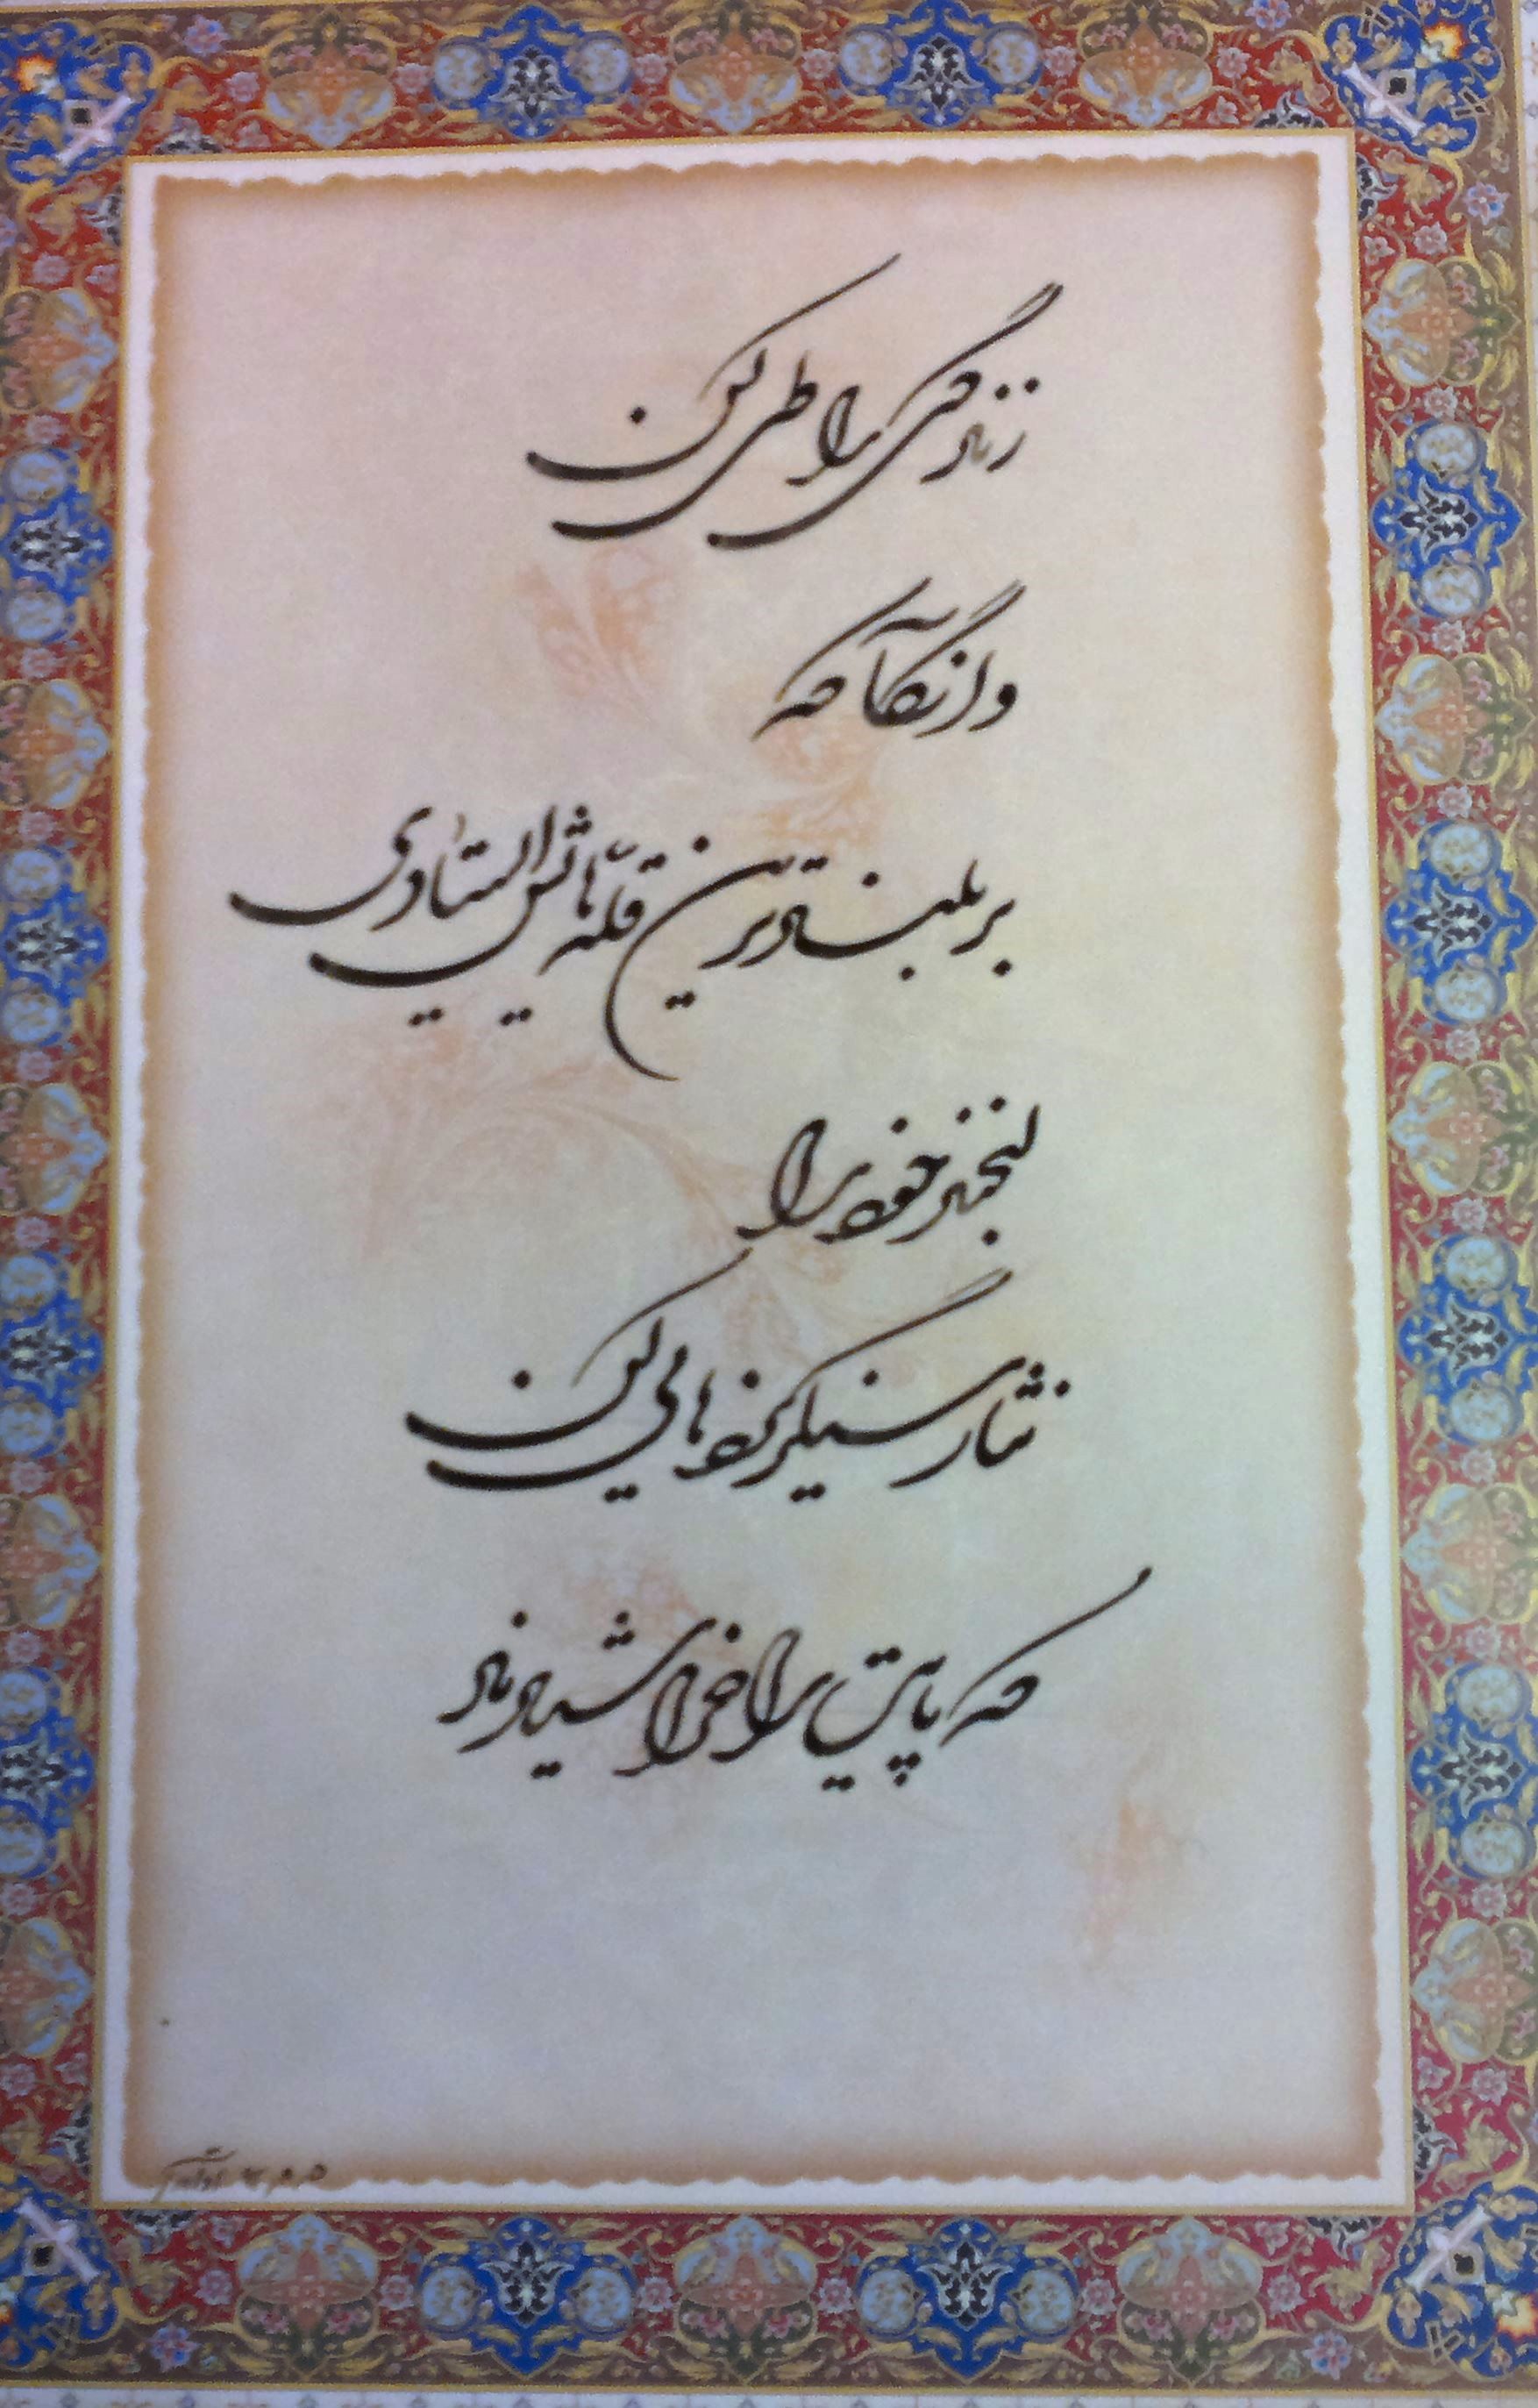 زندگی را طی کن
و آنگاه که
بر بلندترین قلّه‌هایش ایستادی
لبخند خود را
نثار سنگریزه‌هایی کن
که پایت را خراشیدند